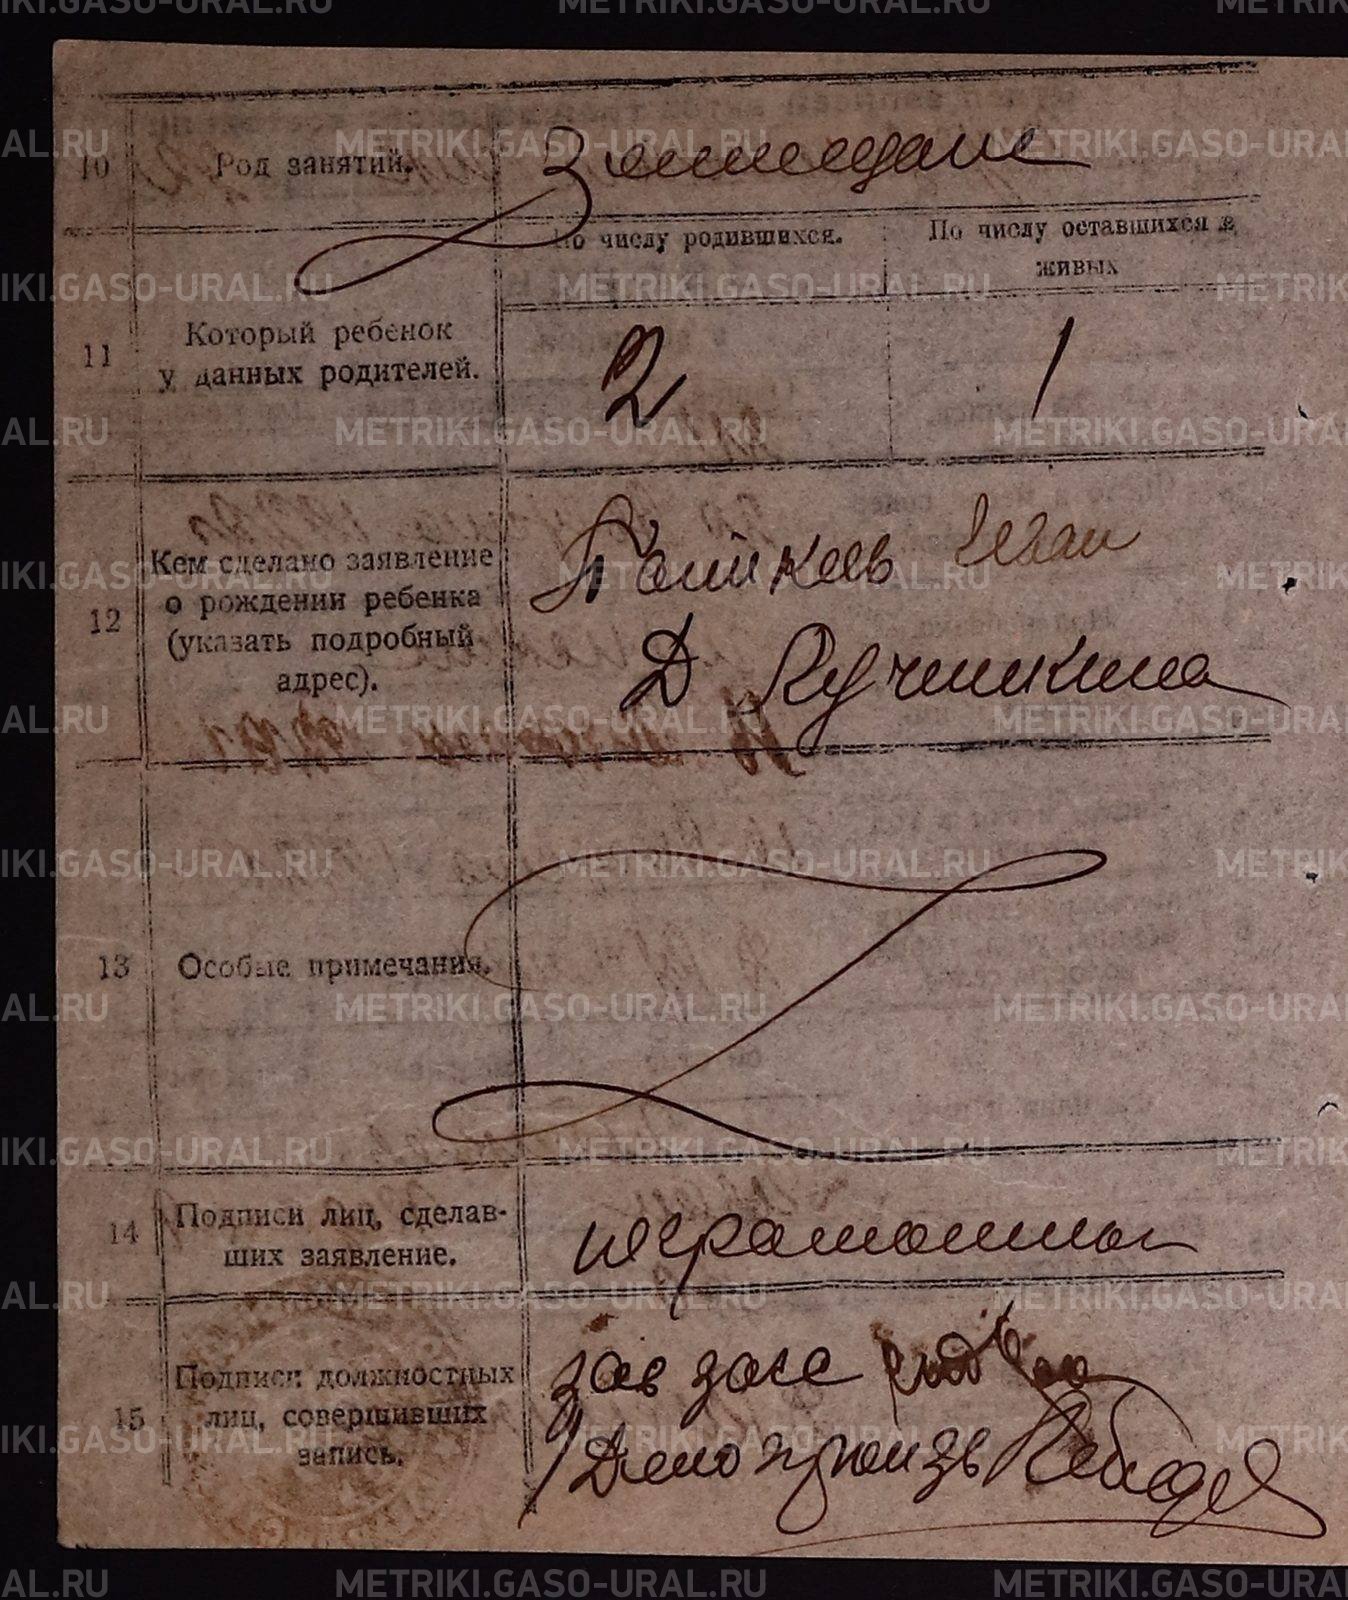 METRIKI.GASO-URAL.RU
10 Род занятий. Землепаш
11 Который ребенок
у данных родителей.
По числу родившихся.
По числу оставшихся в
живых
2
1
12 Кем сделано заявление
о рождении ребенка
(указать подробный
адрес).
Иван
Д
13 Особые примечания.
14 Подписи лиц, сделав-
ших заявление.
неграмотны
15 Подписи должностных
лиц, совершивших
запись.
Зав загс
Делопроизв